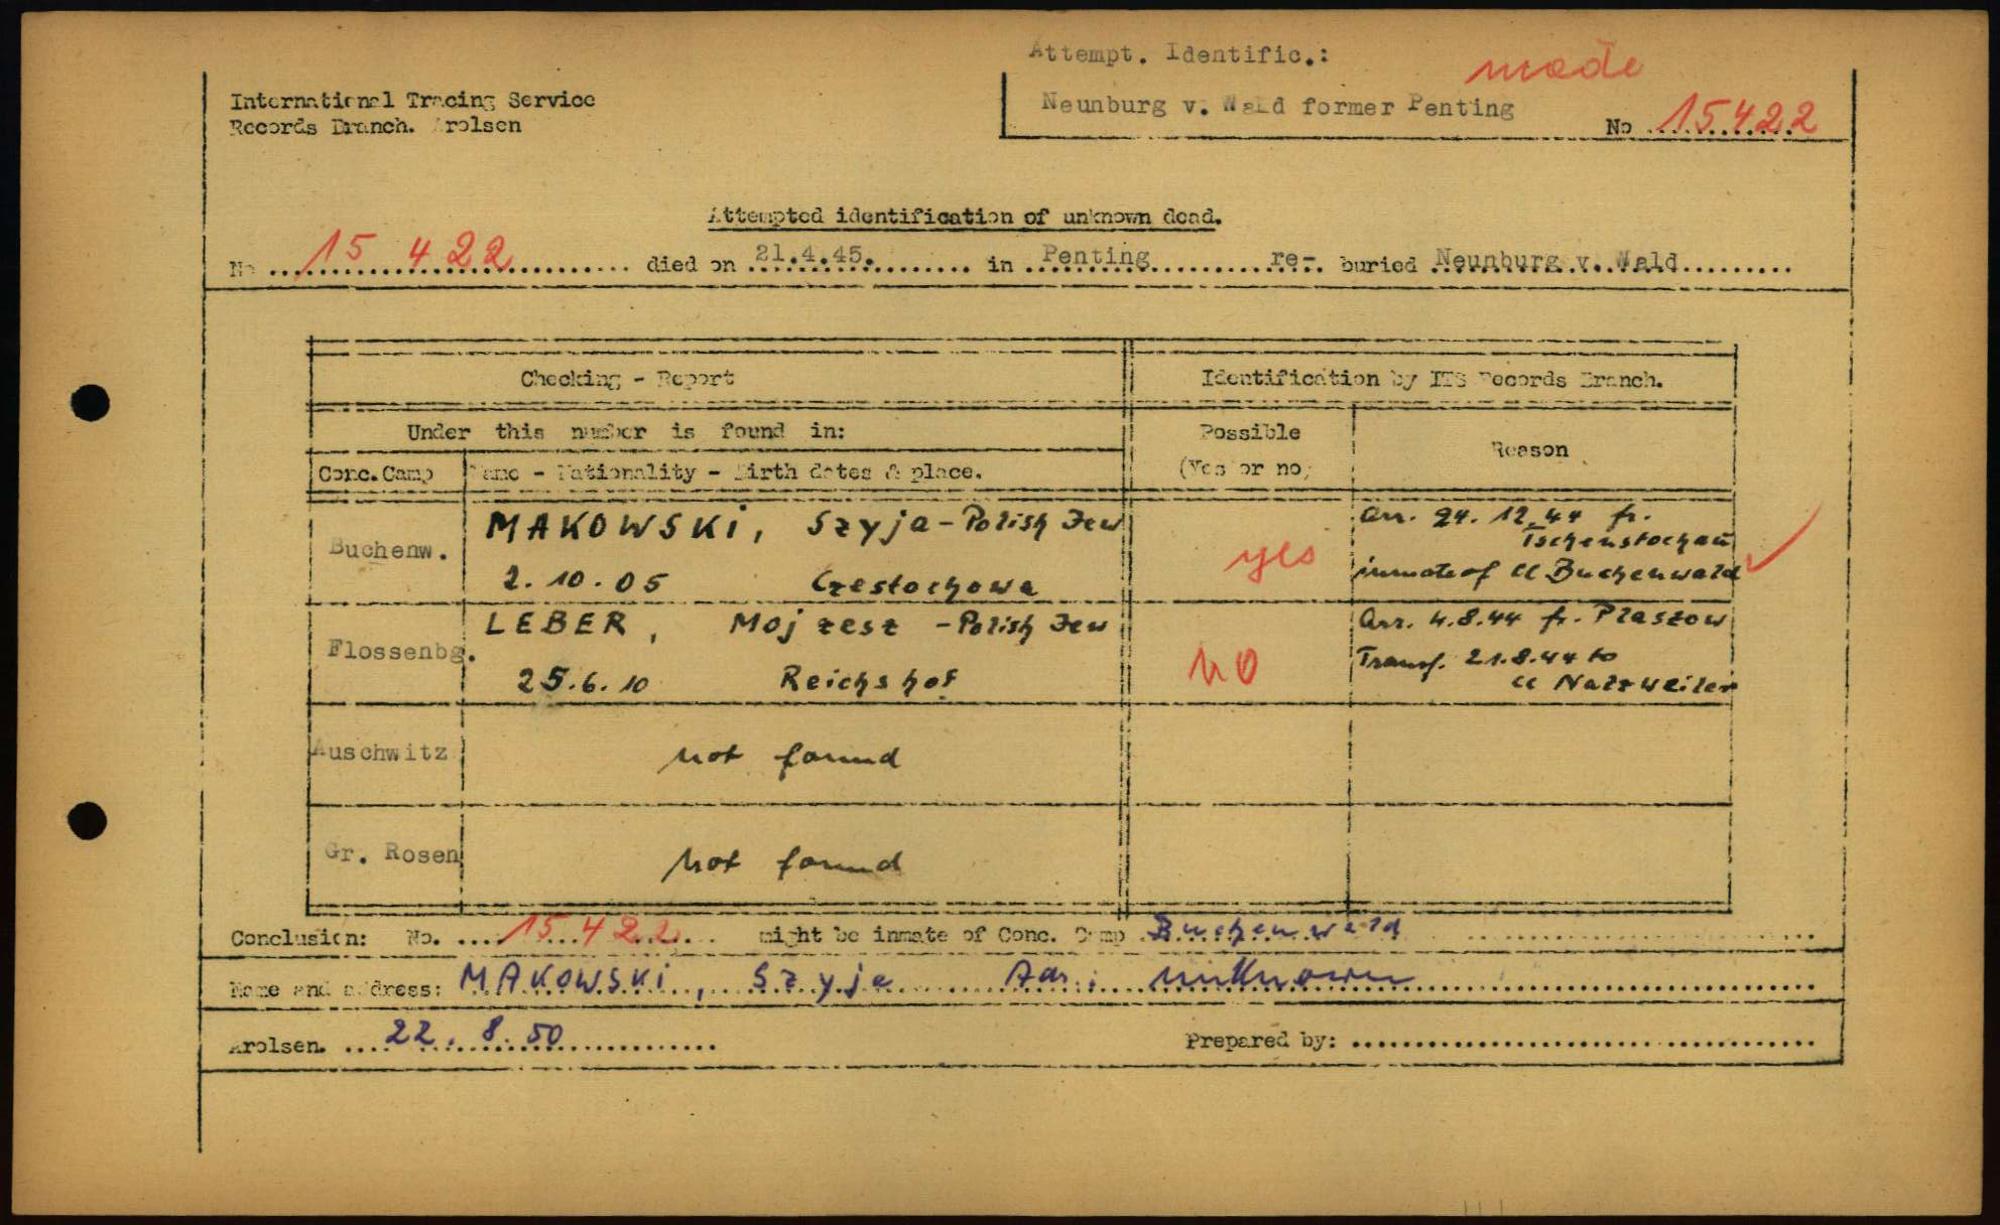 Attempt. Identific.:
made
International Tracing Service
Neunburg v. Wald former Penting
Records Branch. Arolsen
No 15422
Attempted identification of unknown dead.
No 15 422 died on 21.4.45. in Penting re- buried Neunburg v. Wald
Checking - Report
Identification by ITS Records Branch.
Under this number is found in:
Possible
(Yes or no)
Reason
Conc.Camp
Name - Nationality - Birth dates & place.
Buchenw.
MAKOWSKI, Szyja - Polish Jew
2.10.05 Czestochowa
yes
Arr. 24.12.44 fr.
Tschenstochau
inmate of CC Buchenwald
Flossenbg.
LEBER, Mojzesz - Polish Jew
25.6.10 Reichshof
no
Arr. 4.8.44 fr. Plaszow
Transf. 21.8.44 to
CC Natzweiler
Auschwitz
not found
Gr. Rosen
not found
Conclusion: No. 15 422 might be inmate of Conc. Camp Buchenwald
Name and address: MAKOWSKI, Szyja Adr.: unknown
Arolsen. 22. 8. 50
Prepared by: